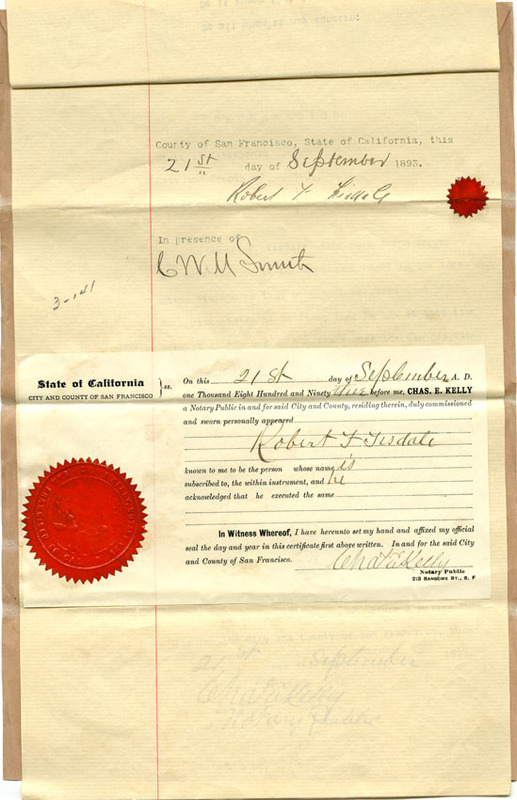 County of San Francisco, State of California, this
21st day of September 1893.
Robert F Tisdale
In presence of
C W M Smith
3-181
State of California
CITY AND COUNTY OF SAN FRANCISCO
} ss.
On this 21st day of September A. D.
one Thousand Eight Hundred and Ninety three before me, CHAS. E. KELLY
a Notary Public in and for said City and County, residing therein, duly commissioned
and sworn personally appeared
Robert F Tisdale
known to me to be the person whose name is
subscribed to, the within instrument, and he
acknowledged that he executed the same
In Witness Whereof, I have hereunto set my hand and affixed my official
seal the day and year in this certificate first above written. In and for the said City
and County of San Francisco.
Chas E Kelly
Notary Public
213 SANSOME ST., S. F
21st September
Chas E Kelly
Notary Public